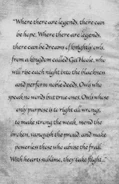 "Where there are legends, there can
be hope. Where there are legends,
there can be dreams of knightly owls,
from a kingdom called Ga'Hoole, who
will rise each night into the blackness
and perform noble deeds. Owls who
speak no words but true ones. Owls whose
only purpose is to right all wrongs,
to make strong the weak, mend the
broken, vanquish the proud, and make
powerless those who abuse the frail.
With hearts sublime, they take flight..."